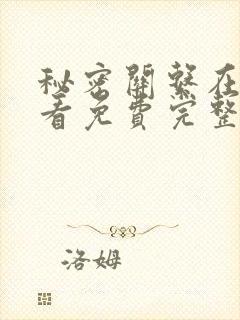 秘密關繫在
看免費完整
洛姆